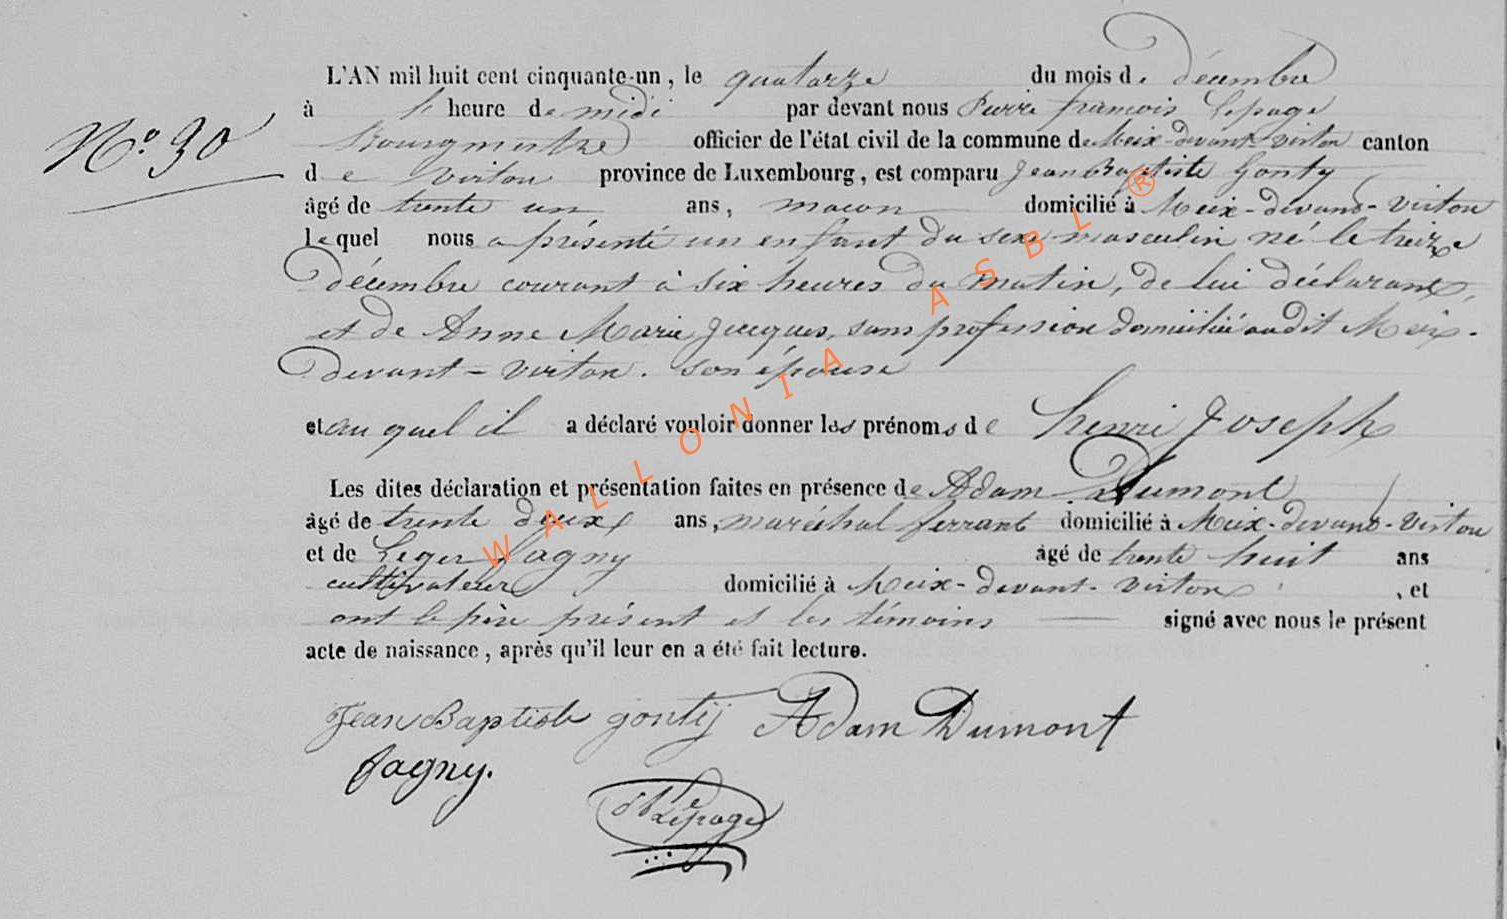 L'AN mil huit cent cinquante-un, le quatorze du mois de décembre
à l' heure de midi par devant nous Pierre françois Lepage
N.° 30
Bourgmestre officier de l'état civil de la commune de Meix-devant-virton canton
de virton province de Luxembourg, est comparu Jean Baptiste Gonty
âgé de trente un ans, macon domicilié à Meix-devant-virton
lequel nous a présenté un enfant du sexe masculin né le treize
décembre courant à six heures du matin, de lui déclarant,
et de Anne Marie Jacques, sans profession domiciliée audit Meix-
devant-virton. son épouse
et au quel il a déclaré vouloir donner les prénoms de henri Joseph
Les dites déclaration et présentation faites en présence de Adam Dumont
âgé de trente deux ans, maréchal ferrant domicilié à Meix-devant-virton
et de Leger fagny âgé de trente huit ans
cultivateur domicilié à Meix-devant-virton, et
ont le père présent et les témoins signé avec nous le présent
acte de naissance, après qu'il leur en a été fait lecture.
Jean Baptiste gontij Adam Dumont
fagny.
Lepage
WALLONIA ASBL ®